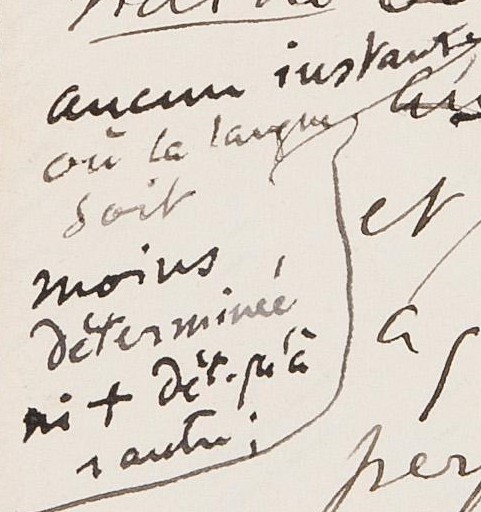 aucun instant
où la langue
soit
moins
déterminée
ni + dét. qu'à
l'autre;
et
a